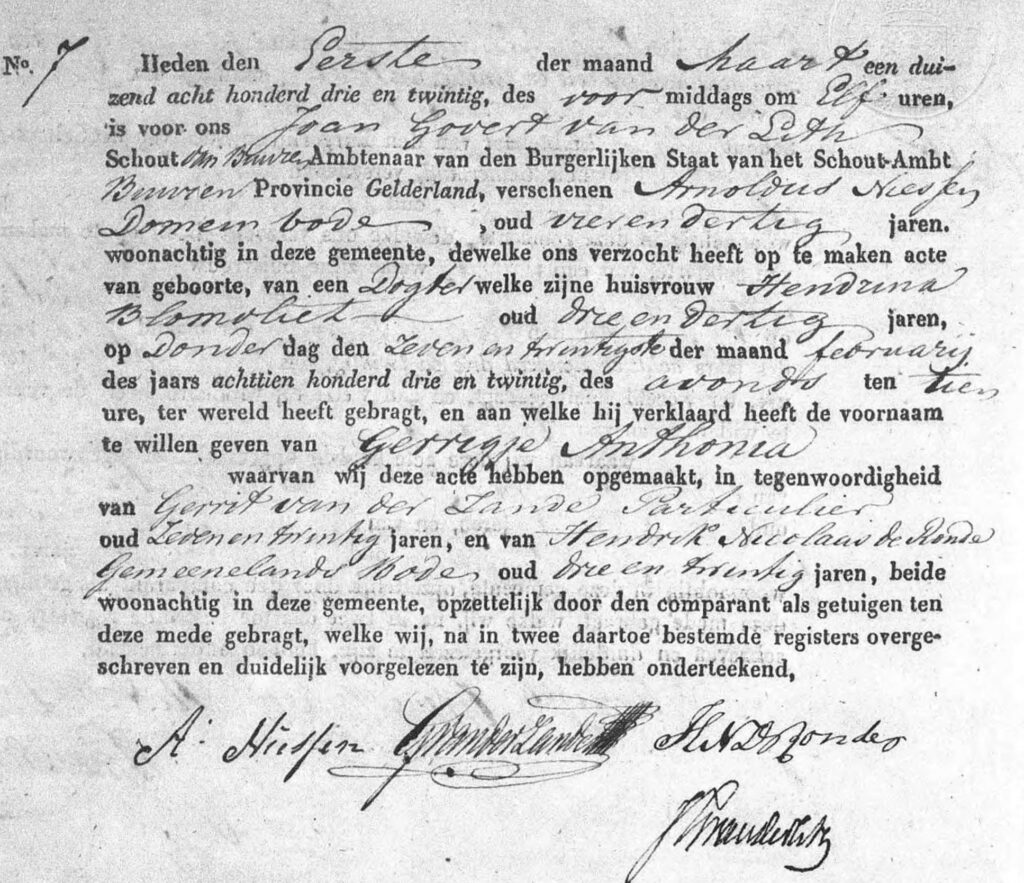 No. 7 Heden den Eerste der maand Maart een dui-
zend acht honderd drie en twintig, des voor middags om Elf uren,
is voor ons Joan Govert van der Lith
Schout van Buuren Ambtenaar van den Burgerlijken Staat van het Schout-Ambt
Buuren Provincie Gelderland, verschenen Arnoldus Niessen
Domein bode , oud vier en dertig jaren.
woonachtig in deze gemeente, dewelke ons verzocht heeft op te maken acte
van geboorte, van een Dogter welke zijne huisvrouw Hendrina
Blomvliet oud drie en dertig jaren,
op Donder dag den Zeven en twintigste der maand februarij
des jaars achttien honderd drie en twintig, des avonds ten tien
ure, ter wereld heeft gebragt, en aan welke hij verklaard heeft de voornaam
te willen geven van Gerrigje Anthonia
waarvan wij deze acte hebben opgemaakt, in tegenwoordigheid
van Gerrit van der Zande Particulier
oud Zeven en twintig jaren, en van Hendrik Nicolaas de Ronde
Gemeenelands Bode oud drie en twintig jaren, beide
woonachtig in deze gemeente, opzettelijk door den comparant als getuigen ten
deze mede gebragt, welke wij, na in twee daartoe bestemde registers overge-
schreven en duidelijk voorgelezen te zijn, hebben onderteekend,
A. Niessen GvanderZande HNDRonde
JGvanderLith